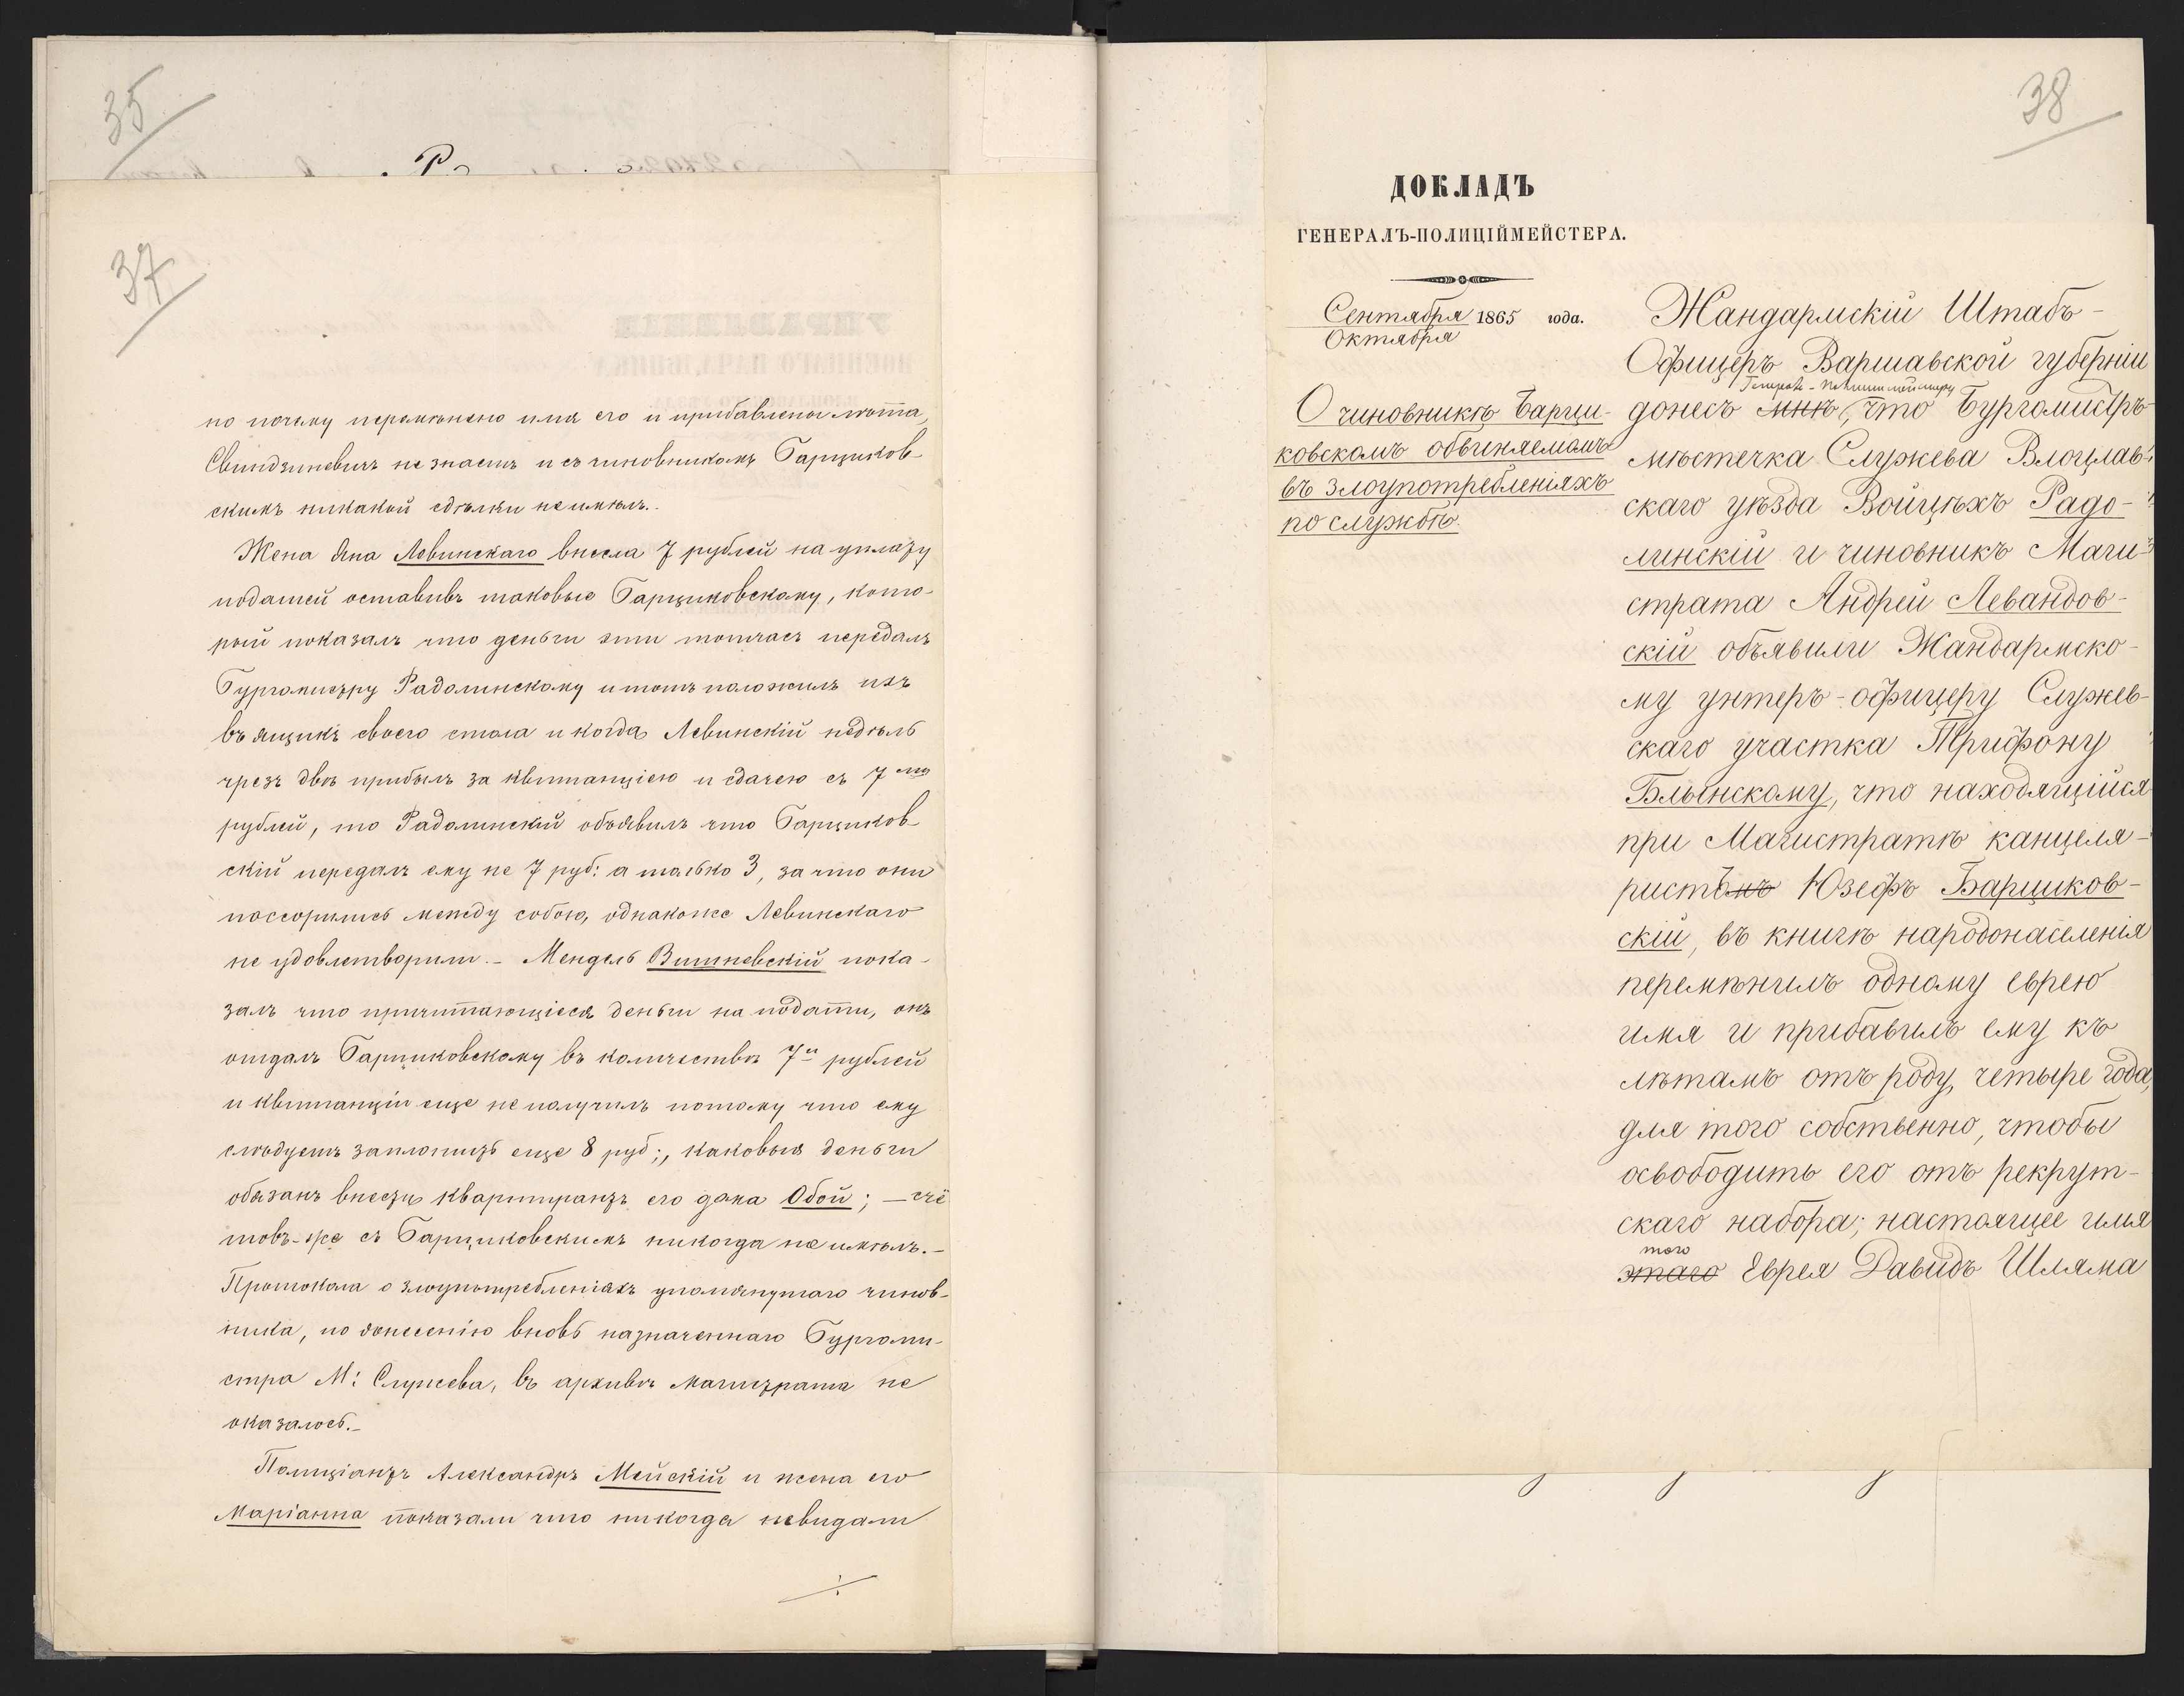 35
37
но почему перемѣнено имя его и прибавлены лѣта,
Свиндзиневичъ не знаетъ и съ чиновникомъ Барциков-
скимъ никакой сдѣлки не имѣлъ.
Жена Яна Левинскаго внесла 7 рублей на уплату
податей оставивъ таковые Барциковскому, кото-
рый показалъ что деньги эти тотчасъ передалъ
Бургомистру Радолинскому и тотъ положилъ ихъ
въ ящикъ своего стола и когда Левинскій недѣль
чрезъ двѣ прибылъ за квитанціею и сдачею съ 7ми
рублей, то Радолинскій объявилъ что Барциков-
скій передалъ ему не 7 руб: а только 3, за что они
поссорились между собою, однакоже Левинскаго
не удовлетворили. - Мендель Вишневскій пока-
залъ что причитающіеся деньги на подати, онъ
отдалъ Барциковскому въ количествѣ 7и рублей
и квитанціи еще не получилъ потому что ему
слѣдуетъ заплотить еще 8 руб;, каковыя деньги
обязанъ внести квартирантъ его дома Обой; - счё
товъ-же съ Барциковскимъ никогда не имѣлъ. -
Протокола о злоупотребленіяхъ упомянутаго чинов-
ника, по донесенію вновь назначеннаго Бургоми-
стра М: Служева, въ архивѣ магистрата не
оказалось. -
Полиціантъ Александръ Мейскій и жена его
Маріанна показали что никогда невидали
38
ДОКЛАДЪ
ГЕНЕРАЛЪ-ПОЛИЦІЙМЕЙСТЕРА.
Сентября 1865 года.
Октября
О чиновникѣ Барци-
ковскомъ обвиняемомъ
въ злоупотребленіяхъ
по службѣ.
Жандармскій Штабъ-
Офицеръ Варшавской губерніи
Генералъ-Полициймейстеру
донесъ мнѣ, что Бургомистръ
мѣстечка Служева Влоцлав-
скаго уѣзда Войцѣхъ Радо-
линскій и чиновникъ Маги-
страта Андрей Левандов-
скій объявили Жандармско-
му унтеръ-офицеру Служев-
скаго участка Трифону
Блынскому, что находящійся
при Магистратѣ канцеля-
ристъ Юзефъ Барциков-
скій, въ книгѣ народонаселенія
перемѣнилъ одному еврею
имя и прибавилъ ему къ
лѣтамъ отъ роду, четыре года,
для того собственно, чтобы
освободить его отъ рекрут-
скаго набора; настоящее имя
того
этаго Еврея Давидъ Шляма